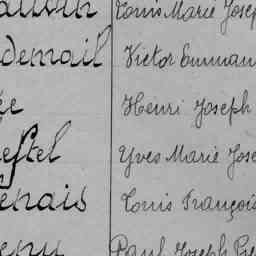 Louis Marie Josep
demail Victor Emman
ée Henri Joseph
estel Yves Marie Jose
énais Louis François
Paul Joseph Pie